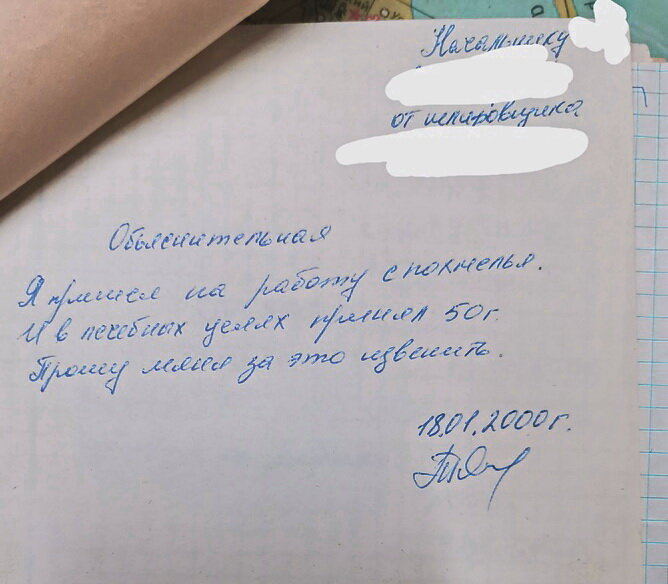 Начальнику
от шлифовщика
Объяснительная
Я пришел на работу с похмелья.
И в лечебных целях принял 50г.
Прошу меня за это извенить.
18.01.2000г.